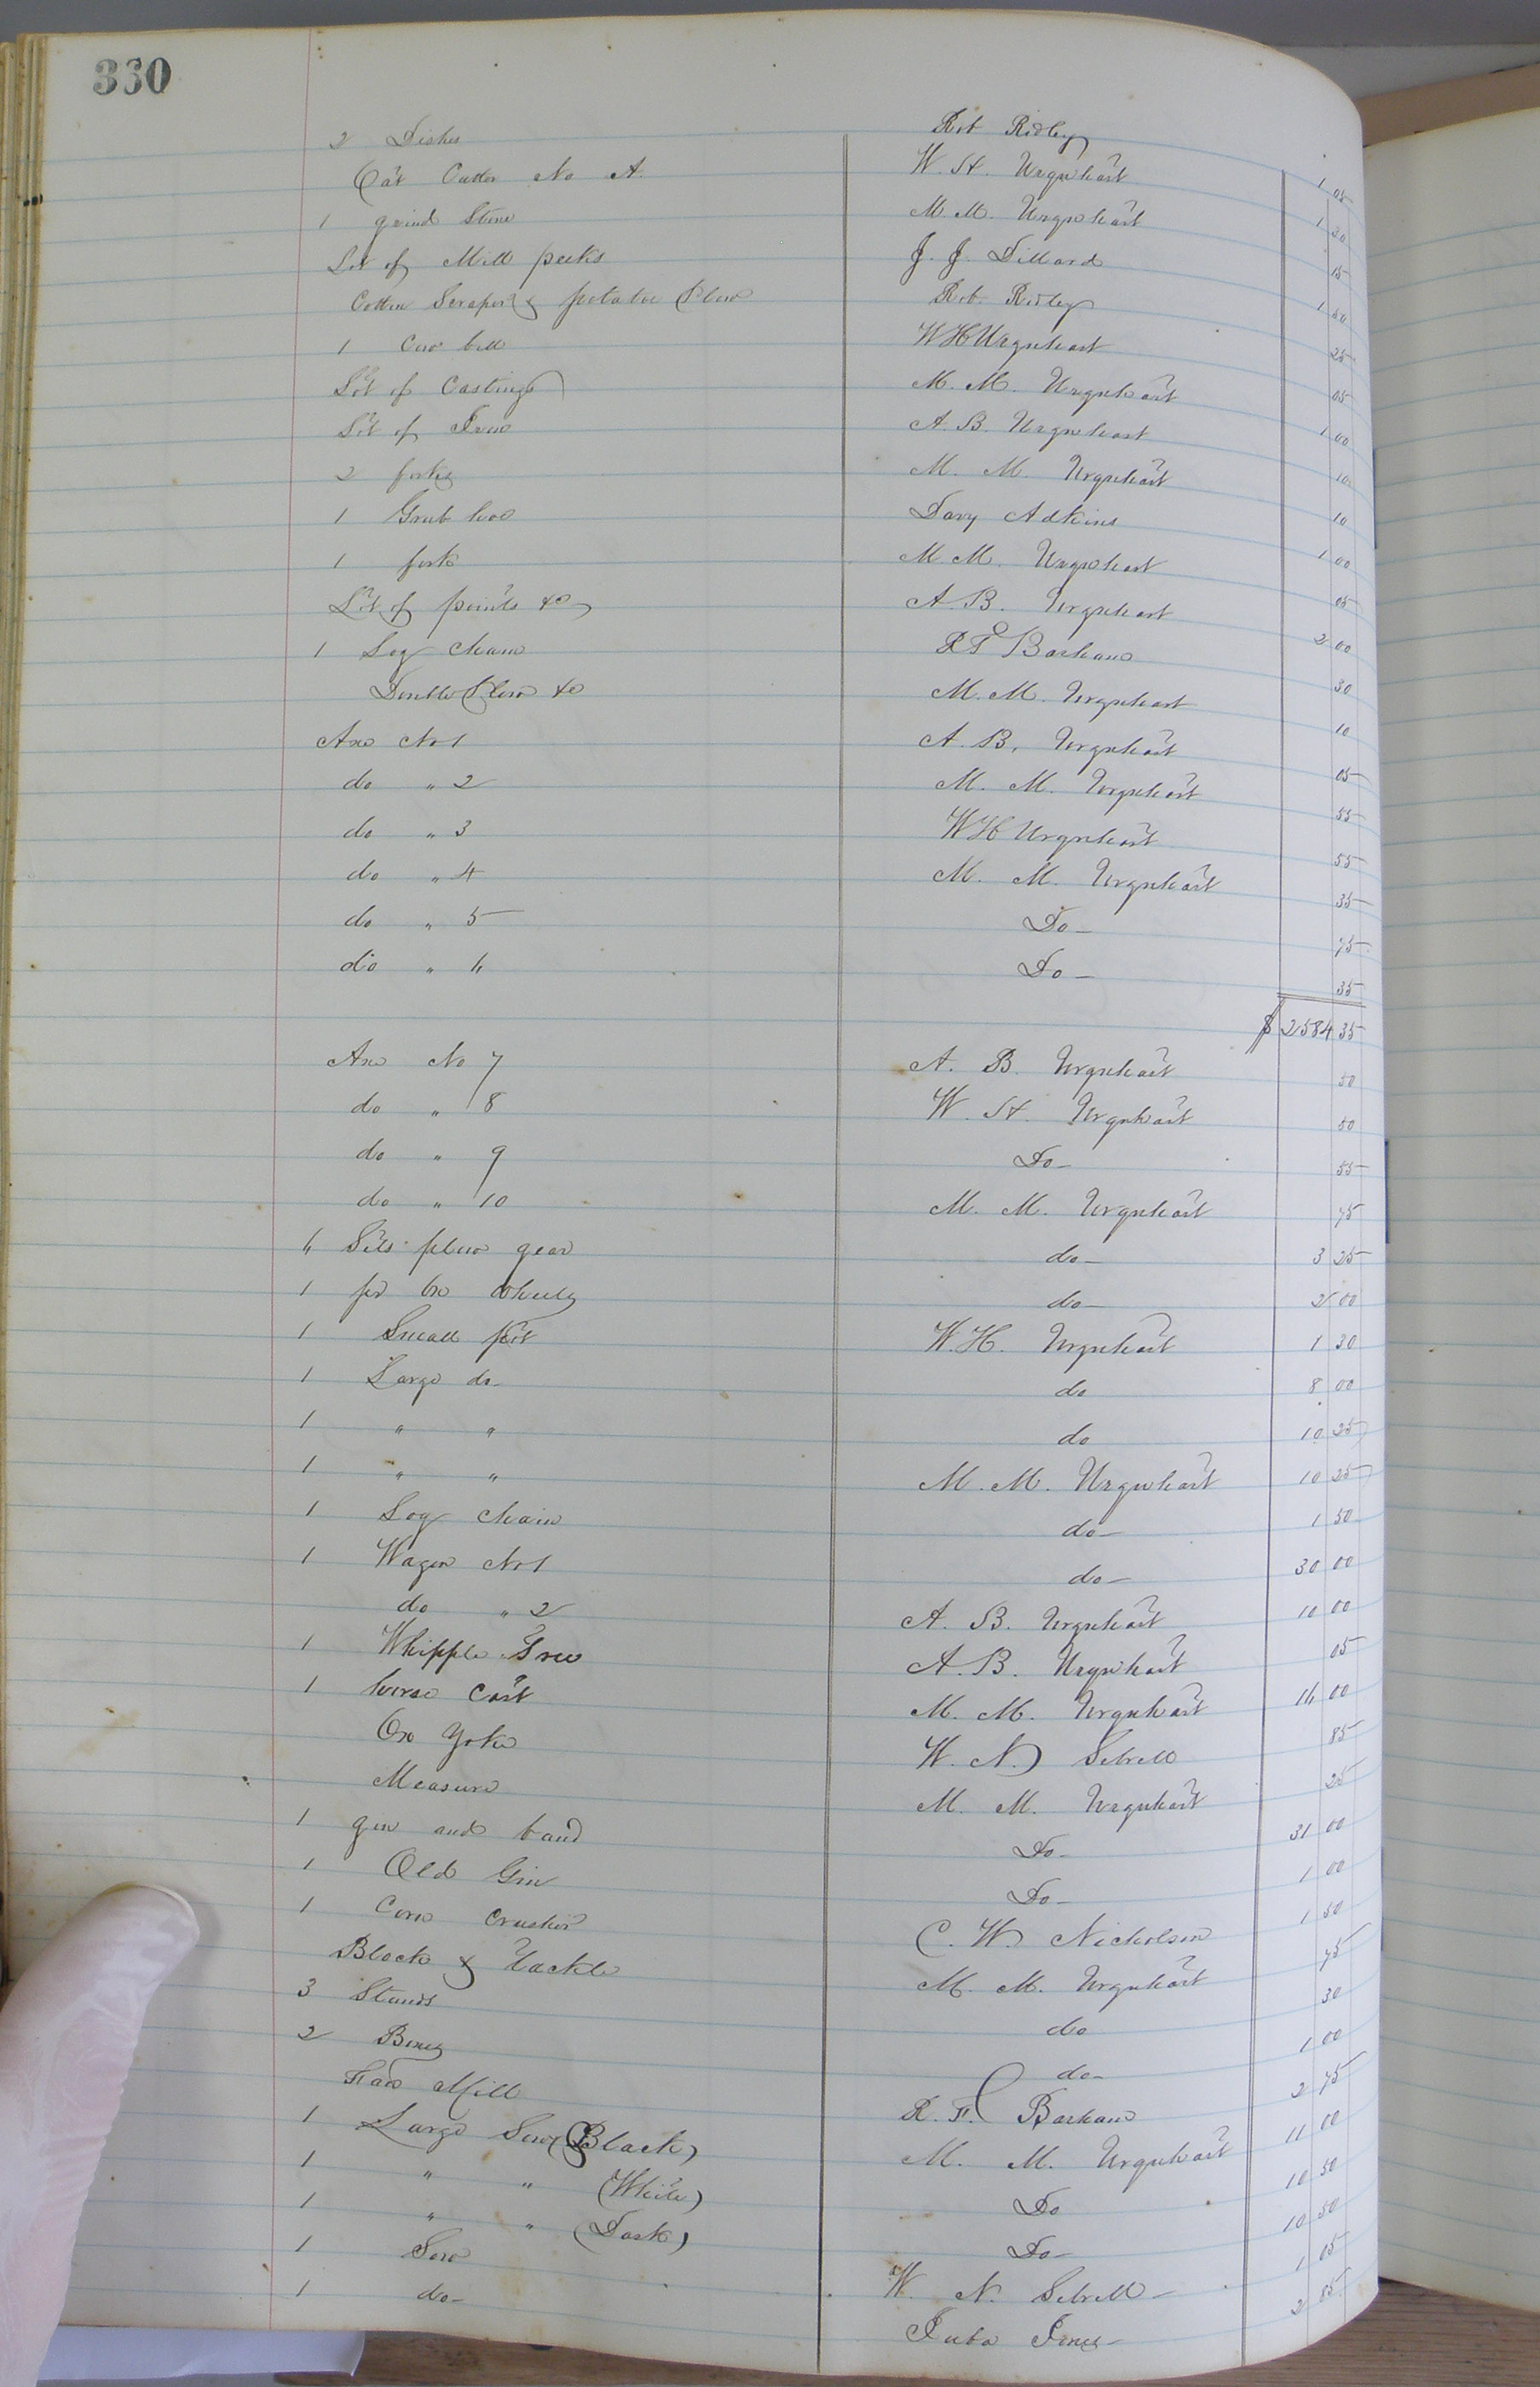 330
2 Dishes Rob Ridley 1 05
Oat Cutter No A. W. H. Urquhart 1 20
1 grind Stone M M. Urquhart 15
Lot of Mill pecks J. J. Dillard 1 50
Cotton Scraper & potatoe Plow Rob. Ridley 25
1 Cow bell W H Urquhart 05
Lot of Castings M. M. Urquhart 1 00
Lot of Iron A. B. Urquhart 10
2 forks M. M. Urquhart 10
1 Grub hoe Davy Adkins 1 00
1 fork M. M. Urquhart 05
Lot of points &c A. B. Urquhart 2 00
1 Log Chain R F Barham 30
Double Plow &c M. M. Urquhart 10
Axe No 1 A. B. Urquhart 05
do " 2 M. M. Urquhart 55
do " 3 W H Urquhart 55
do " 4 M. M. Urquhart 35
do " 5 Do 75
do " 6 Do 35
$ 2584 35
Axe No 7 A. B. Urquhart 50
do " 8 W. H. Urquhart 50
do " 9 Do 55
do " 10 M. M. Urquhart 75
6 Sets plow gear do 3 25
1 pr Ox Wheels do 2 00
1 Small pot W. H. Urquhart 1 30
1 Large do do 8 00
1 " " do 10 25
1 " " M. M. Urquhart 10 25
1 Log Chain do 1 50
1 Wagon No 1 do 30 00
do " 2 A. B. Urquhart 10 00
1 Whipple Tree A. B. Urquhart 05
1 horse Cart M. M. Urquhart 16 00
Ox Yoke W. N. Sebrell 85
Measure M. M. Urquhart 25
1 gin and band Do 31 00
1 Old Gin Do 1 00
1 Corn Crusher C. W. Nicholson 1 50
Block & tackle M. M. Urquhart 75
3 Stands do 30
2 Boxes do 1 00
Fan Mill R. F. Barham 2 75
1 Large Sow (Black) M. M. Urquhart 11 00
1 " " (White) Do 10 50
1 " " (Dark) Do 10 50
1 Sow W. N. Sebrell 1 05
1 do Juba Jones 2 05